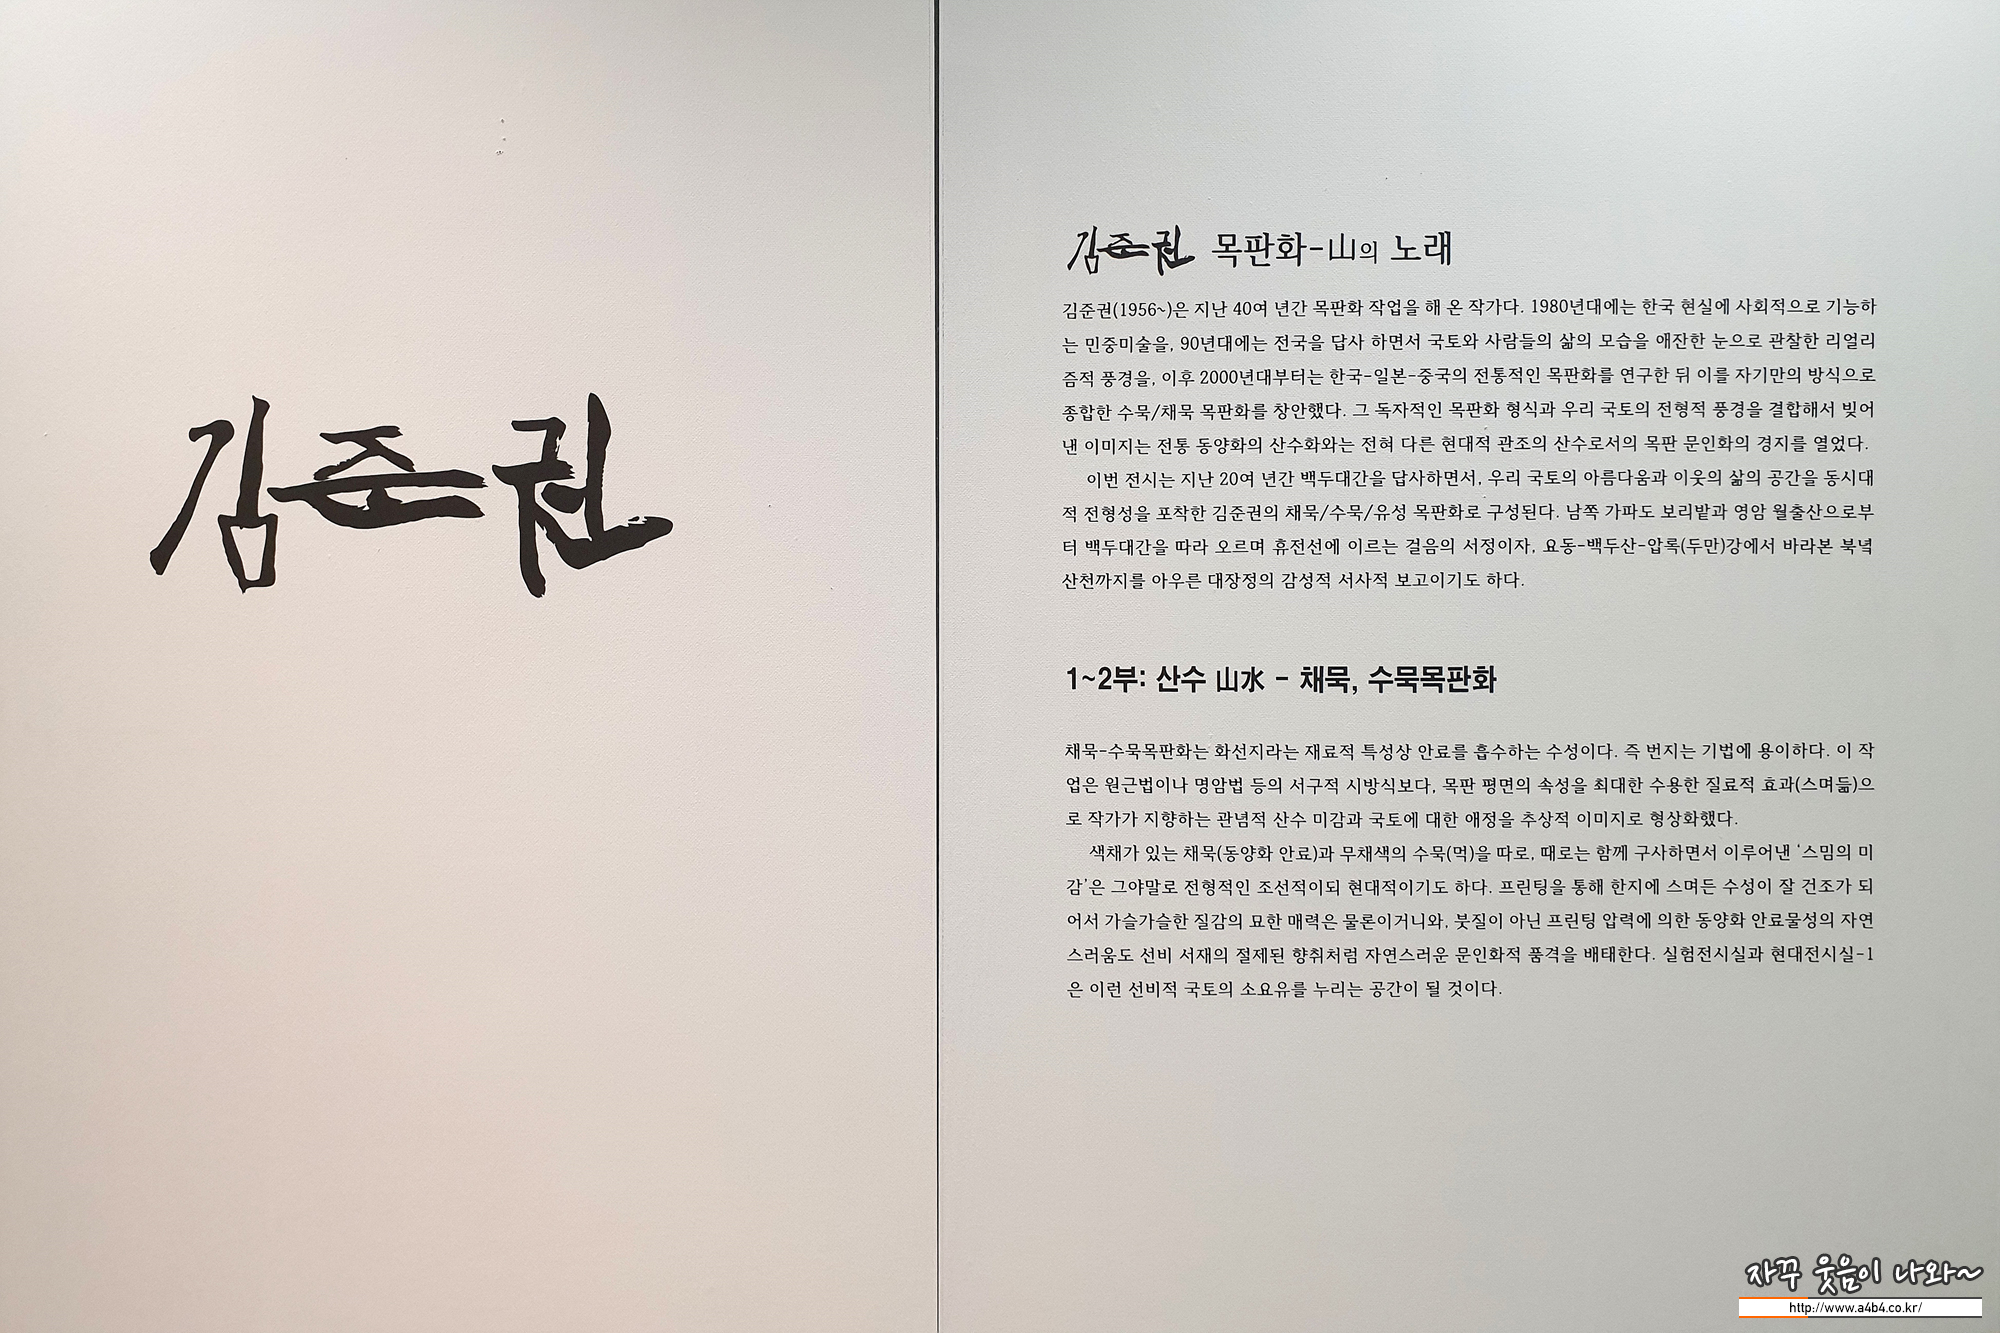 김준권
김준권 목판화-山의 노래
김준권(1956~)은 지난 40여 년간 목판화 작업을 해 온 작가다. 1980년대에는 한국 현실에 사회적으로 기능하
는 민중미술을, 90년대에는 전국을 답사 하면서 국토와 사람들의 삶의 모습을 애잔한 눈으로 관찰한 리얼리
즘적 풍경을, 이후 2000년대부터는 한국-일본-중국의 전통적인 목판화를 연구한 뒤 이를 자기만의 방식으로
종합한 수묵/채묵 목판화를 창안했다. 그 독자적인 목판화 형식과 우리 국토의 전형적 풍경을 결합해서 빚어
낸 이미지는 전통 동양화의 산수화와는 전혀 다른 현대적 관조의 산수로서의 목판 문인화의 경지를 열었다.
이번 전시는 지난 20여 년간 백두대간을 답사하면서, 우리 국토의 아름다움과 이웃의 삶의 공간을 동시대
적 전형성을 포착한 김준권의 채묵/수묵/유성 목판화로 구성된다. 남쪽 가파도 보리밭과 영암 월출산으로부
터 백두대간을 따라 오르며 휴전선에 이르는 걸음의 서정이자, 요동-백두산-압록(두만)강에서 바라본 북녘
산천까지를 아우른 대장정의 감성적 서사적 보고이기도 하다.
1~2부: 산수 山水 - 채묵, 수묵목판화
채묵-수묵목판화는 화선지라는 재료적 특성상 안료를 흡수하는 수성이다. 즉 번지는 기법에 용이하다. 이 작
업은 원근법이나 명암법 등의 서구적 시방식보다, 목판 평면의 속성을 최대한 수용한 질료적 효과(스며듦)으
로 작가가 지향하는 관념적 산수 미감과 국토에 대한 애정을 추상적 이미지로 형상화했다.
색채가 있는 채묵(동양화 안료)과 무채색의 수묵(먹)을 따로, 때로는 함께 구사하면서 이루어낸 ‘스밈의 미
감’은 그야말로 전형적인 조선적이되 현대적이기도 하다. 프린팅을 통해 한지에 스며든 수성이 잘 건조가 되
어서 가슬가슬한 질감의 묘한 매력은 물론이거니와, 붓질이 아닌 프린팅 압력에 의한 동양화 안료물성의 자연
스러움도 선비 서재의 절제된 향취처럼 자연스러운 문인화적 품격을 배태한다. 실험전시실과 현대전시실-1
은 이런 선비적 국토의 소요유를 누리는 공간이 될 것이다.
자꾸 웃음이 나와~
http://www.a4b4.co.kr/